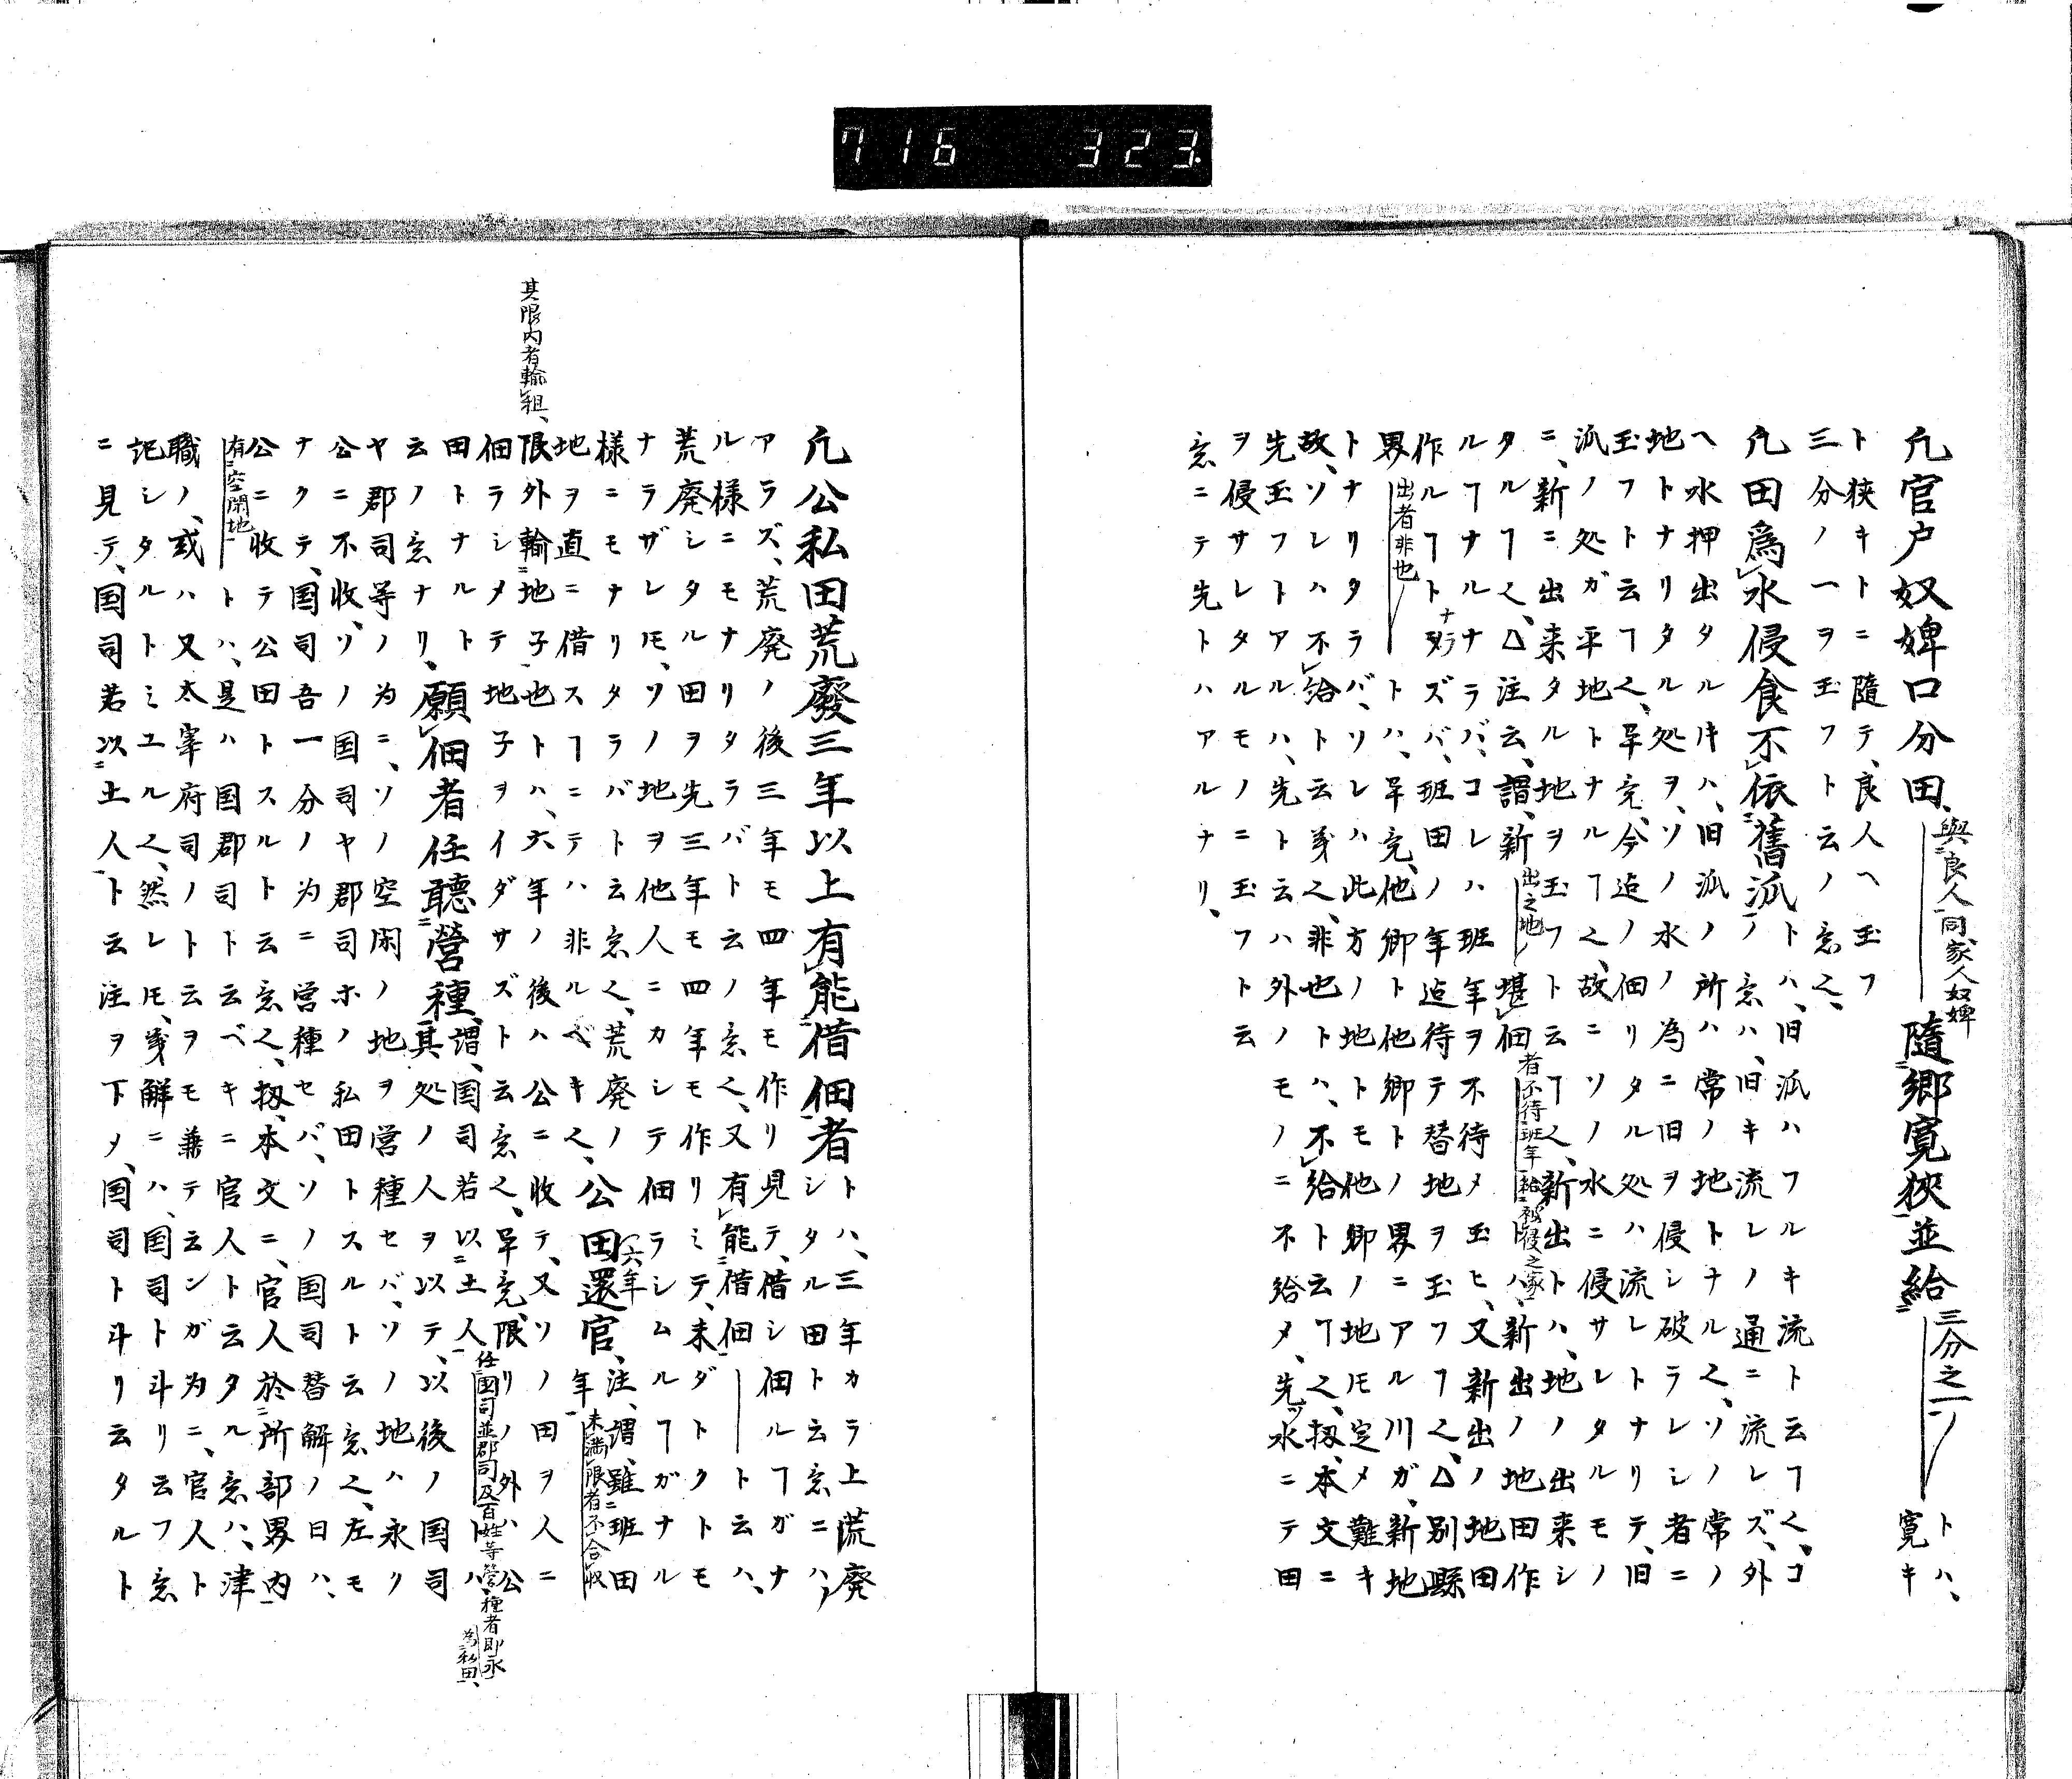 716 323
凢官戸奴婢口分田、與良人同家人奴婢隨郷寛狹並給三分之一ノトハ、寛キ
ト狭キトニ隨テ、良人ヘ玉フ
三分ノ一ヲ玉フト云ノ意也、
凢田爲水侵食不依舊派ノトハ、旧派ハフルキ流ト云フ也、コ
ノ意ハ、旧キ流レノ通ニ流レズ、外
ヘ水押出タルキハ、旧派ノ所ハ常ノ地トナル也、ソノ常ノ
地トナリタル処ヲ、ソノ水ノ為ニ旧ヲ侵シ破ラレシ者ニ
玉フト云ヿ也、畢竟、今迠ノ佃リタル処ハ流レトナリテ、旧
派ノ処ガ平地トナルヿ也、故ニソノ水ニ侵サレタルモノ
ニ、新ニ出来タル地ヲ玉フト云ヿ也、新出トハ、地ノ出来シ
タルヿ也、△注云、謂、新出之地ノ堪佃者不待班年給被侵之家トハ、新出ノ地田作
ルヿナルナラバ、コレハ班年ヲ不待メ玉ヒ、又新出ノ地田
作ルヿトナラズバ、班田ノ年迠待テ替地ヲ玉フヿ也、△別縣
界出者非也トハ、畢竟、他郷ト他郷トノ界ニアル川ガ、新地
トナリタラバ、ソレハ此方ノ地トモ他郷ノ地モ定メ難キ
故、ソレハ不給ト云義也、非也トハ、不給ト云ヿ也、扨、本文ニ
先玉フトアルハ、先ト云ハ外ノモノニ不給メ、先ツ水ニテ田
ヲ侵サレタルモノニ玉フト云
意ニテ先トハアルナリ、
凢公私田荒廢三年以上有能借佃者トハ、三年カラ上荒廃
シタル田ト云意ニハ
アラズ、荒廃ノ後三年モ四年モ作リ見テ、借シ佃ルヿガナ
ル様ニモナリタラバト云ノ意也、又有能借佃ーート云ハ、
荒廃シタル田ヲ先三年モ四年モ作リミテ、未ダトクトモ
ナラザレモ、ソノ地ヲ他人ニカシテ佃ラシムルヿガナル
様ニモナリタラバト云意也、荒廃ノ田六年還官、注、謂、雖班田
地ヲ直ニ借スヿニテハ非ルベキ也、公年未満限者不合収
其限内者輸租、限外輸地子也トハ、六年ノ後ハ公ニ收テ、又ソノ田ヲ人ニ
佃ラシメテ地子ヲイダサズト云意也、畢竟、限リノ外ハ公
田トナルト
云ノ意ナリ、願佃者任聽營種、謂、国司若以土人任国司並郡司及百姓等営種者即永為私田、トハ
其処ノ人ヲ以テ、以後ノ国司
ヤ郡司等ノ为ニ、ソノ空闲ノ地ヲ営種セバ、ソノ地ハ永ク
公ニ不收、ソノ国司ヤ郡司ホノ私田トスルト云意也、左モ
ナクテ、国司吾一分ノ为ニ営種セバ、ソノ国司替解ノ日ハ、
公ニ收テ公田トスルト云意也、扨、本文ニ、官人於所部界内
有空閑地トハ、是ハ国郡司ト云ベキニ官人ト云タル意ハ、津
職ノ、或ハ又太宰府司ノト云ヲモ兼テ云ンガ为ニ、官人ト
記シタルトミユル也、然レモ、義解ニハ、国司ト斗リ云フ意
ニ見テ、国司若以土人ト云注ヲ下メ、国司ト斗リ云タルト